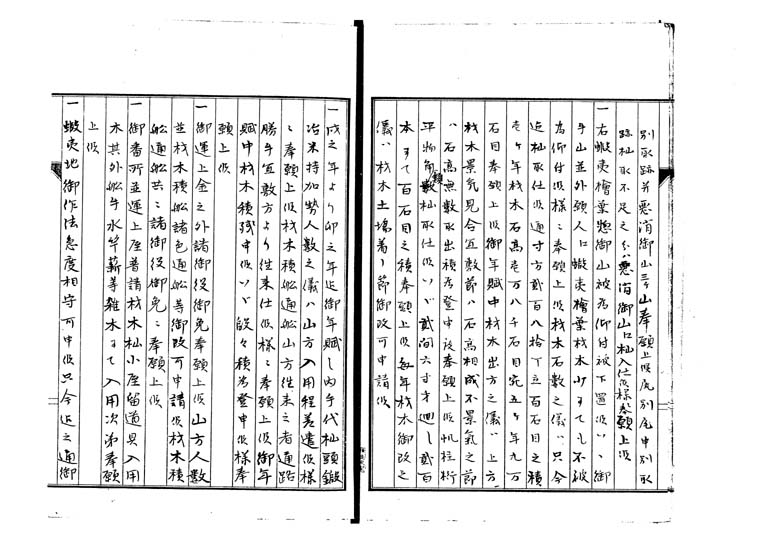 別取跡并悪消御山三ヶ山奉願上候尻別尾中別取
跡杣取不足之分ハ悪消御山口杣入仕候様奉願上候
一右蝦夷檜葉惣御山被為仰付被下置候ハヽ御
手山並外願人江蝦夷檜葉材木少ニても不被
為仰付候様ニ奉願上候材木石数之儀ハ只今
迄杣取仕候通寸方弐百八拾丁立百石目之積
壱ヶ年材木石高壱万八千石目宛五ヶ年九万
石目奉願上候御年賦中材木出方之儀ハ上方
材木景気見合宜敷節ハ石高相成不景気之節
ハ石高無数取出積為登申度奉願上候帆柱桁
平物角類杣取仕候ハヽ弐間六寸才廻し弐百
本ニて百石目之積奉願上候毎年材木御改之
儀ハ材木土場着之節御改可申請候
一戌之年より卯之年迄御年賦之内手代杣頭鍛
冶米持加勢人数之儀ハ山方入用程差遣候様
ニ奉願上候材木積船通船山方往来之者通路
勝手宜敷方より往来仕候様ニ奉願上候御年
賦中材木積残申候ハヽ段々積為登申候様奉
願上候
一御運上金之外諸御役御免奉願上候山方人数
並材木積船諸色通船等御改可申請候材木積
船通船共ニ諸御役御免ニ奉願上候
一御番所並運上屋普請材木杣小屋留道具入用
木其外船手水竿薪等雑木ニて入用次第奉願
上候
一蝦夷地御作法急度相守可申候只今迄之通御